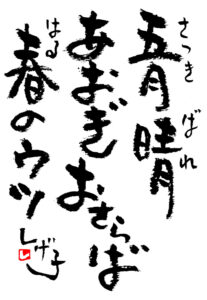 五月晴
さつき ばれ
あおぎ おさらば
春のウツ
はる
しげ子
し